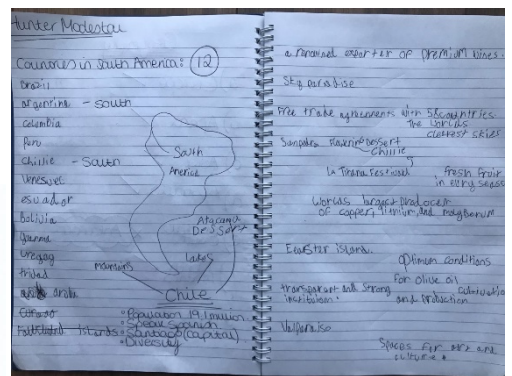 Hunter Modestou
Countries in South America: 12
Brazil
argenrina - South
Colombia
Peru
Chillie - South
Venesuel
esuador
Bolivia
guanna
uregay
tridad
aruba
Curaso
Faulkland islands
South
America
Atacama
Dessart
Lakes
mountains
Chile
• Population 19.1 million
• Speak Spanish
• Santiago (Capital)
• Diversity
a renowned exporter of premium wines.
Sky paradise
Free trade agreements with 58 countries
The worlds
clearest skies
Flowering Dessert
Chillie
La Tirana Festival
fresh fruit
in every season
Worlds largest producer
of copper, litnium, and molyberum
Eearster island.
Optimum conditions
For olive oil
cultivation
and production
transparent and strong
institution.
Valparaiso
Spaces for art and
culture.